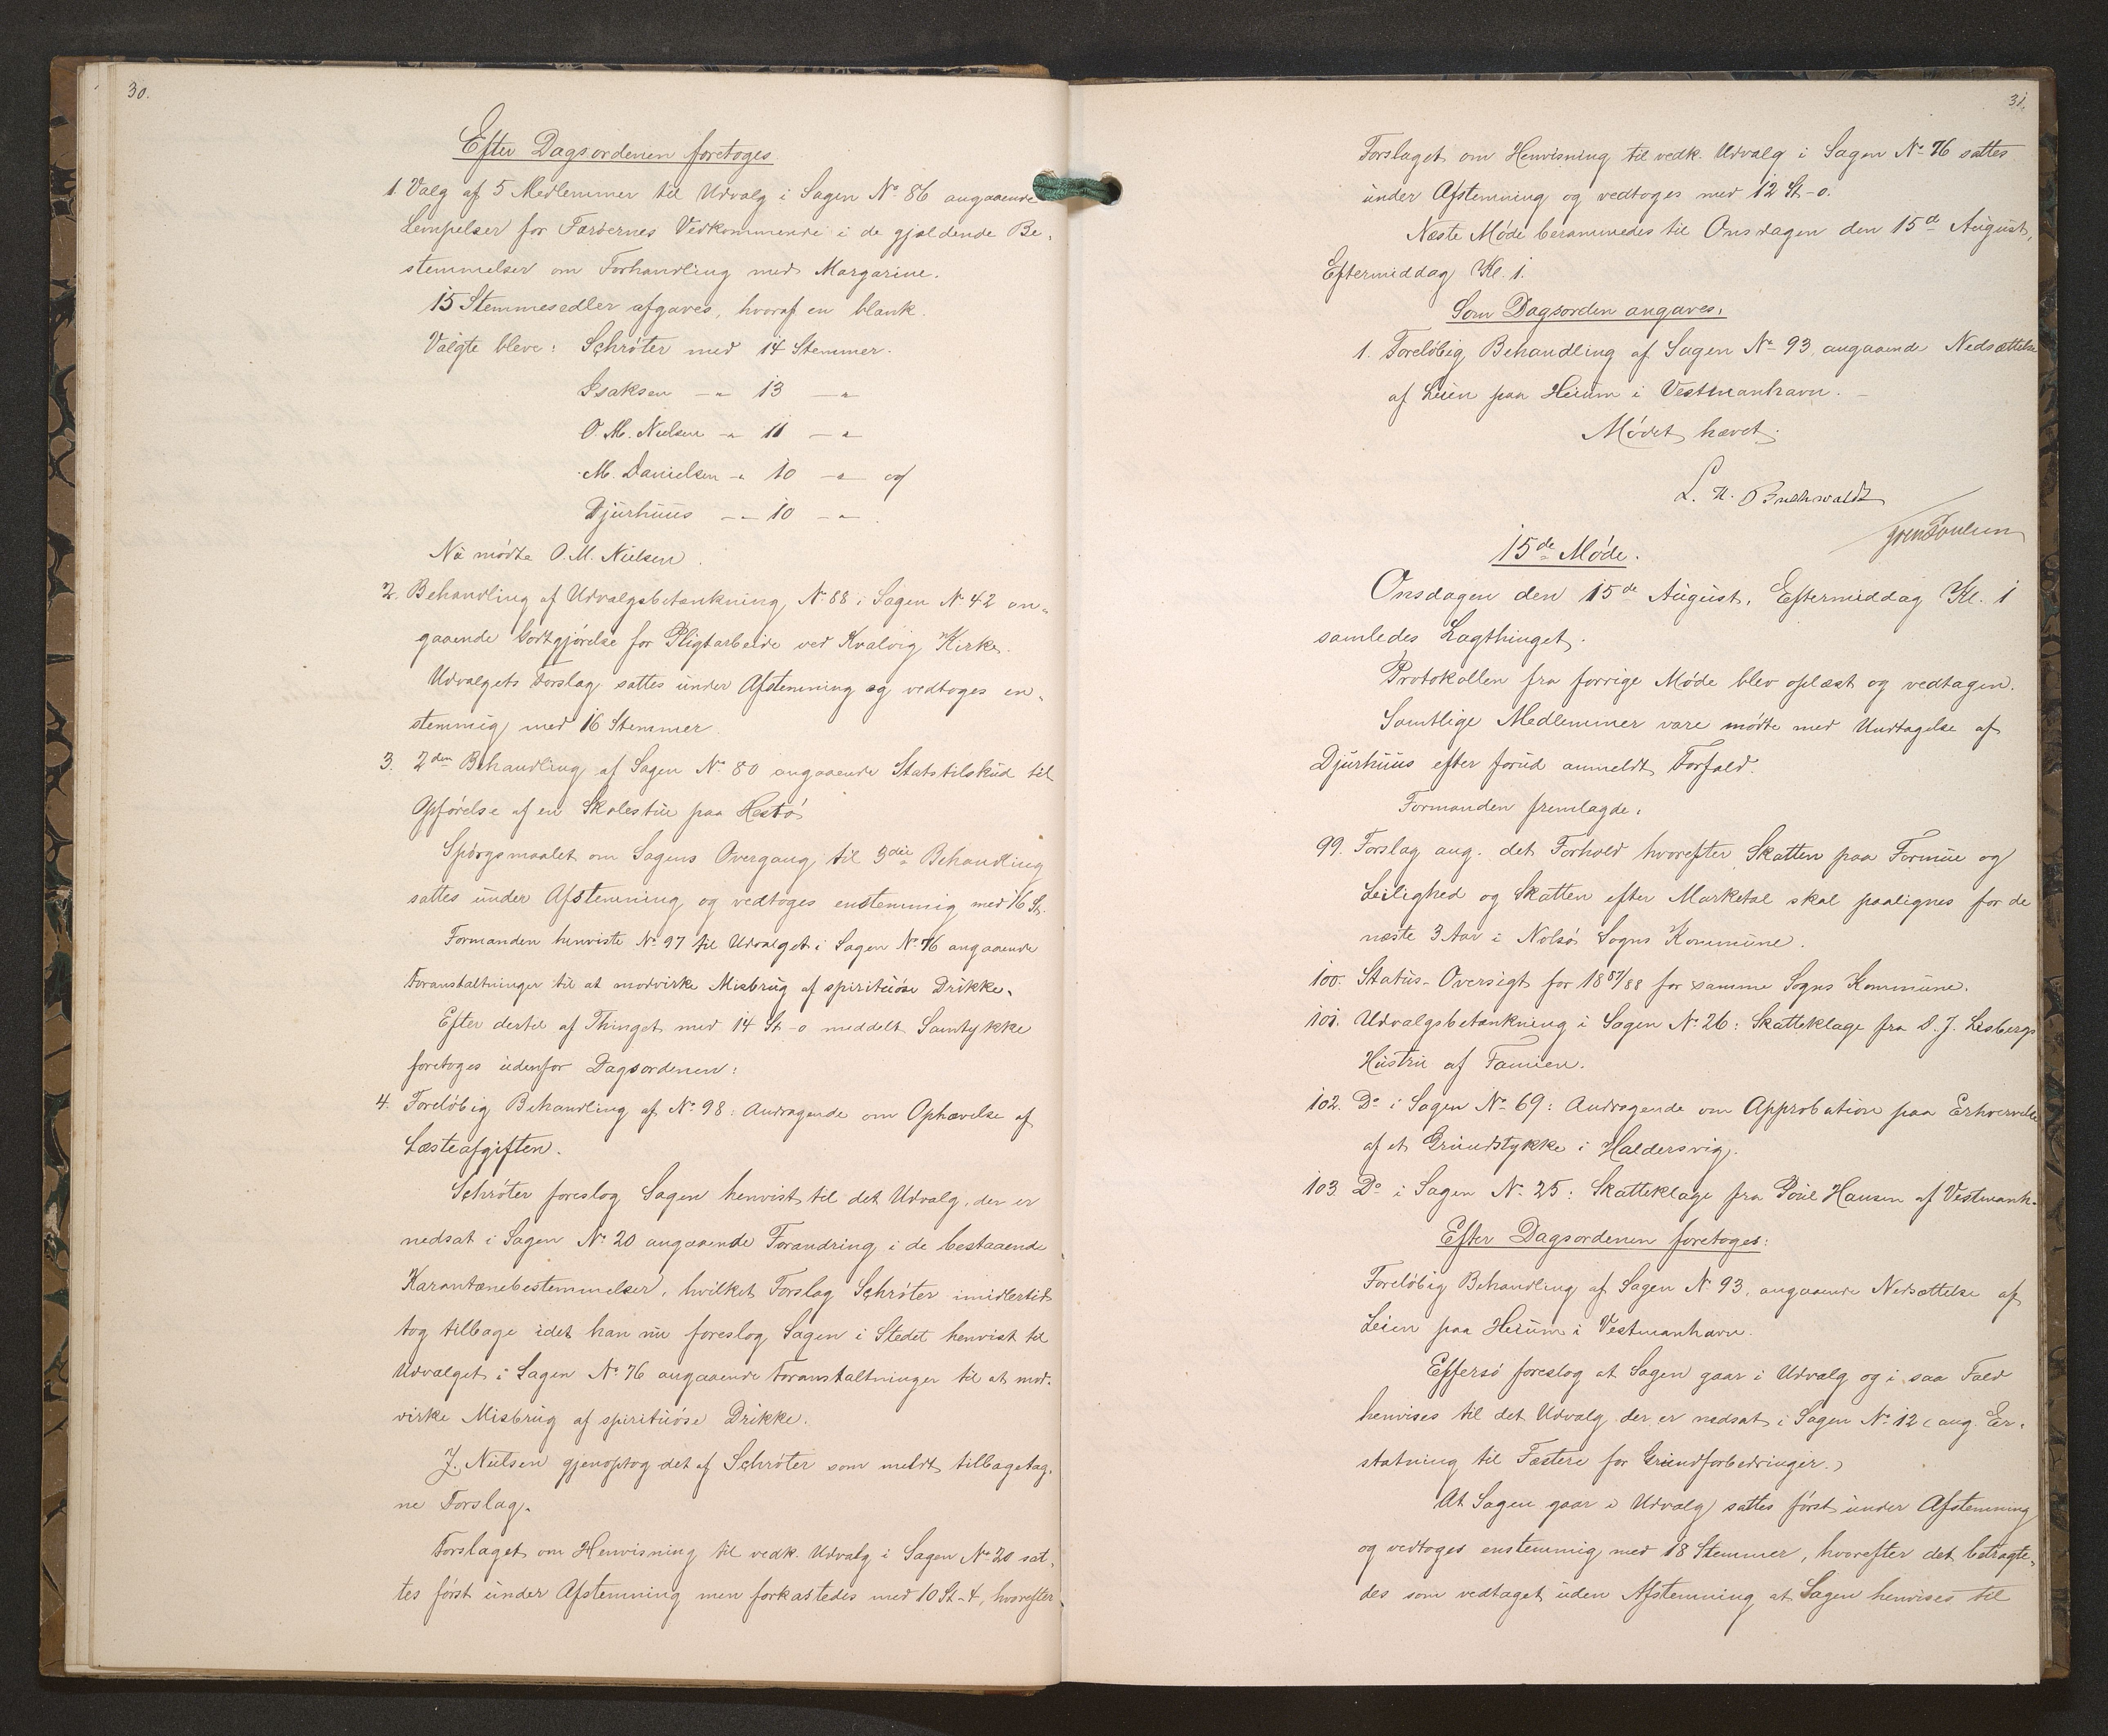 30.
Efter Dagsordenen foretoges
1. Valg af 5 Medlemmer til Udvalg i Sagen No 86 angaaende
Lempelser for Færøernes Vedkommende i de gjældende Be-
stemmelser om Forhandling med Margarine.
15 Stemmesedler afgaves, hvoraf en blank.
Valgte bleve: Schrøter med 14 Stemmer.
Isaksen –"– 13 –"–
O. M. Nielsen –"– 11 –"–
M. Danielsen –"– 10 –"– og
Djurhuus –"– 10 –"– .
Nu mødte O. M. Nielsen.
2. Behandling af Udvalgsbetænkning No 88 i Sagen No 42 an-
gaaende Godtgjørelse for Pligtarbeide ved Kvalvig Kirke.
Udvalgets Forslag sattes under Afstemning og vedtoges en-
stemmig med 16 Stemmer.
3. 2den Behandling af Sagen No 80 angaaende Statstilskud til
Opførelse af en Skolestue paa Hestø
Spørgsmaalet om Sagens Overgang til 3die Behandling
sattes under Afstemning og vedtoges enstemmig med 16 St.
Formanden henviste No 97 til Udvalget i Sagen No 76 angaaende
Foranstaltninger til at modvirke Misbrug af spirituøse Drikke.
Efter dertil af Thinget med 14 St – 0 meddelt Samtykke
foretoges udenfor Dagsordenen:
4. Foreløbig Behandling af No 98: Andragende om Ophævelse af
Læsteafgiften.
Schrøter foreslog Sagen henvist til det Udvalg, der er
nedsat i Sagen No 20 angaaende Forandring i de bestaaende
Karantænebestemmelser, hvilket Forslag Schrøter imidlertid
tog tilbage idet han nu foreslog Sagen i Stedet henvist til
Udvalget i Sagen No 76 angaaende Foranstaltninger til at mod-
virke Misbrug af spirituøse Drikke.
J. Nielsen gjenoptog det af Schrøter som meldt tilbagetag-
ne Forslag.
Forslaget om Henvisning til vedk. Udvalg i Sagen No 20 sat-
tes først under Afstemning men forkastedes med 10 St – 4, hvorefter
31.
Forslaget om Henvisning til vedk. Udvalg i Sagen No 76 sattes
under Afstemning og vedtoges med 12 St – 0.
Næste Møde berammedes til Onsdagen den 15d August,
Eftermiddag Kl. 1.
Som Dagsorden angaves:
1. Foreløbig Behandling af Sagen No 93, angaaende Nedsættelse
af Leien paa Heium i Vestmanhavn. –
Mødet hævet.
L. H. Buchwaldt
15de Møde.
Onsdagen den 15de August, Eftermiddag Kl. 1
samledes Lagthinget.
Protokollen fra forrige Møde blev oplæst og vedtagen.
Samtlige Medlemmer vare mødte med Undtagelse af
Djurhuus efter forud anmeldt Forfald.
Formanden fremlagde:
99. Forslag ang. det Forhold hvorefter Skatten paa Formue og
Leilighed og Skatten efter Marketal skal paalignes for de
næste 3 Aar i Nolsø Sogns Kommune.
100. Status-Oversigt for 1887/88 for samme Sogns Kommune.
101. Udvalgsbetænkning i Sagen No 26: Skatteklage fra D. J. Lisbergs
Hustru af Famien.
102. Do i Sagen No 69: Andragende om Approbation paa Erhvervelse
af et Grundstykke i Haldersvig.
103. Do i Sagen No 25: Skatteklage fra Poul Hansen af Vestmanh.
Efter Dagsordenen foretoges:
Foreløbig Behandling af Sagen No 93, angaaende Nedsættelse af
Leien paa Heium i Vestmanhavn.
Effersø foreslog at Sagen gaar i Udvalg og i saa Fald
henvises til det Udvalg der er nedsat i Sagen No 12 (ang. Er-
statning til Fæstere for Grundforbedringer.)
At Sagen gaar i Udvalg sattes først under Afstemning
og vedtoges enstemmig med 18 Stemmer, hvorefter det betragte-
des som vedtaget uden Afstemning at Sagen henvises til